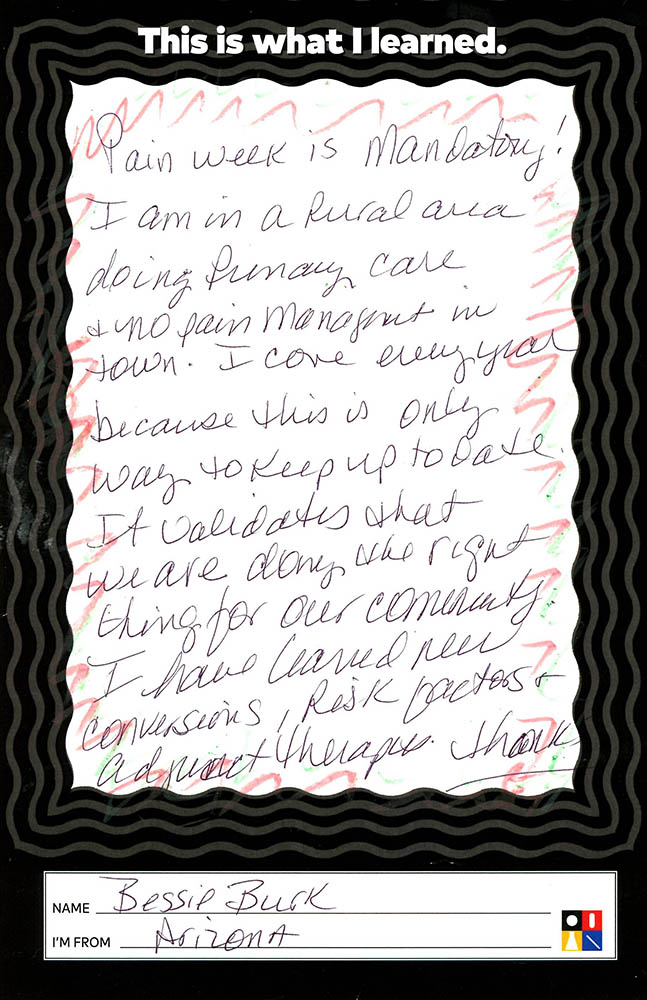 This is what I learned.
Pain week is Mandatory!
I am in a Rural area
doing Primary care
& no pain Managmt in
town. I come every year
because this is only
way to keep up to Date.
It validates that
we are doing the right
thing for our community
I have learned new
conversions, Risk factors &
adjunct therapies. thank
NAME Bessie Burk
I'M FROM Arizona